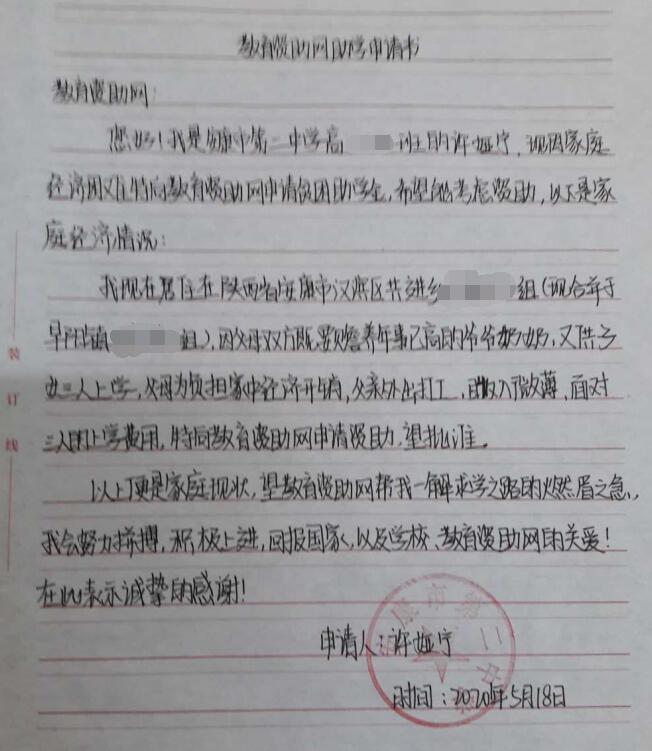 教育资助网助学申请书
教育资助网:
您好!我是安康市第二中学高 班的许娅宁,现因家庭
经济困难特向教育资助网申请贫困助学金,希望能考虑资助,以下是家
庭经济情况:
我现在居住在陕西省安康市汉滨区共进乡 组(现合并于
早阳镇 组),因父母双方既要赡养年事已高的爷爷奶奶,又供子
女三人上学,父母为负担家中经济开销,父亲外出打工,但收入微薄,面对
三人的上学费用,特向教育资助网申请资助,望批准。
以上便是家庭现状,望教育资助网帮我一解求学之路的燃眉之急,
我会努力拼搏,积极上进,回报国家,以及学校、教育资助网的关爱!
在此表示诚挚的感谢!
申请人:许娅宁
时间:2020年5月18日
装
订
线
康市第二中